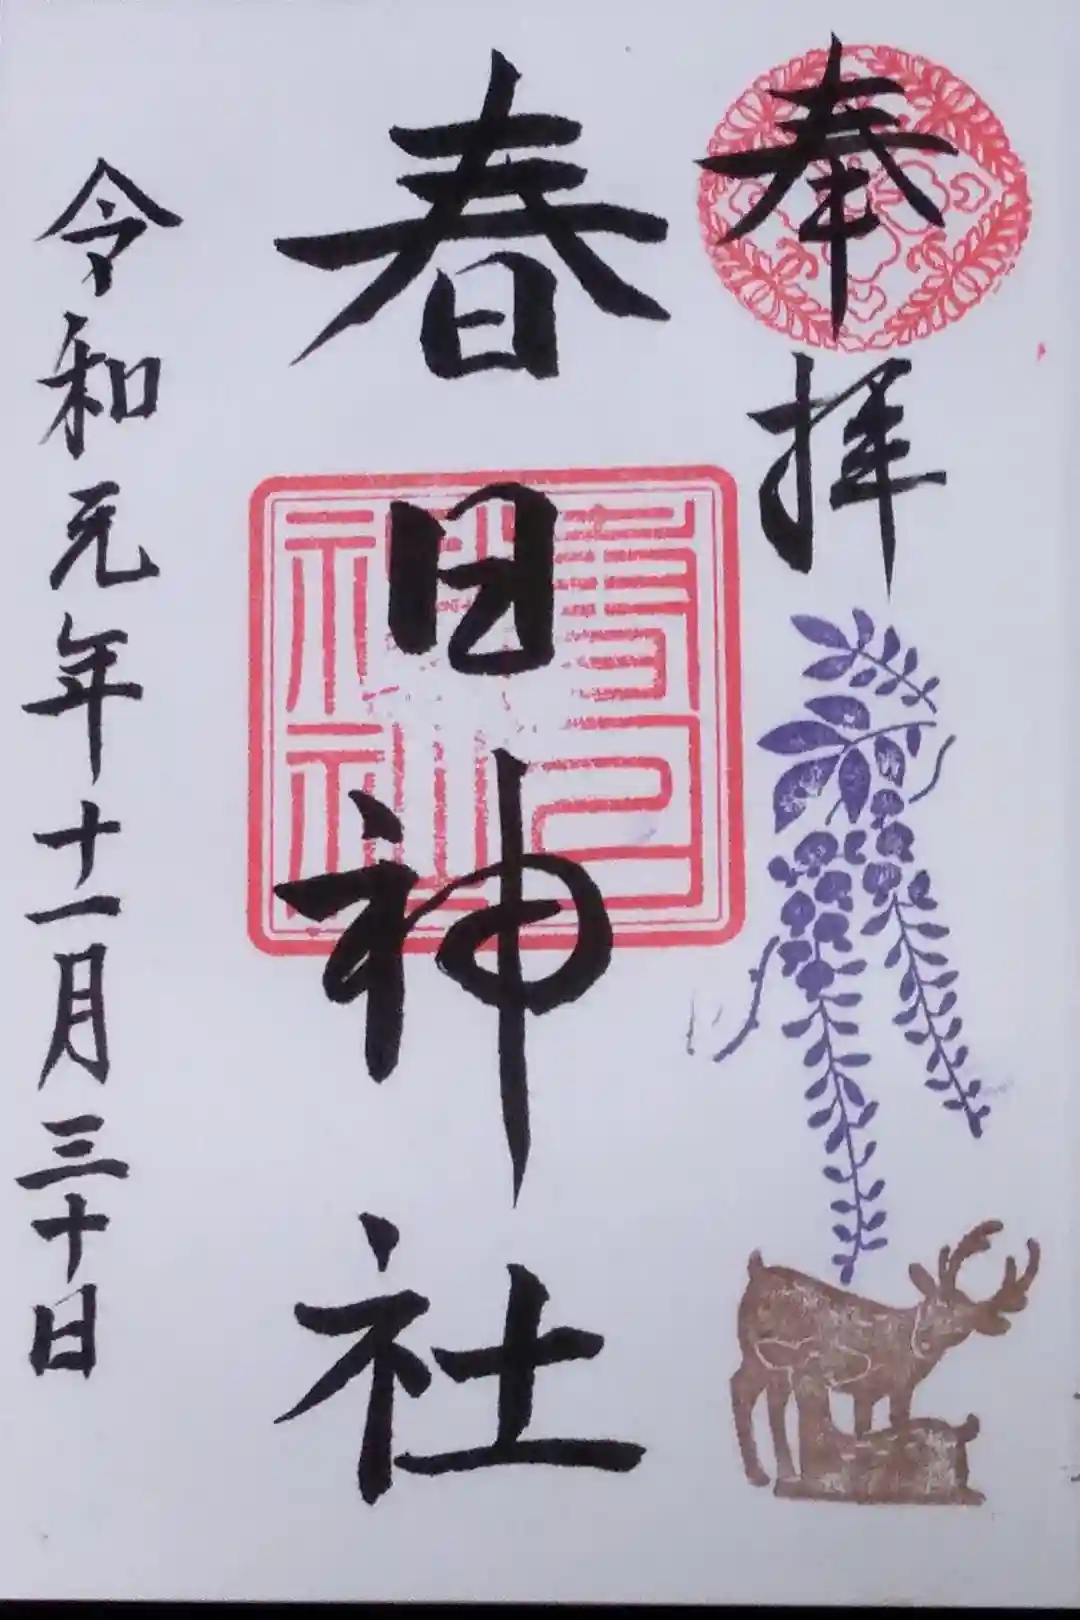 奉拝
春日神社
春日神社
令和元年十一月三十日